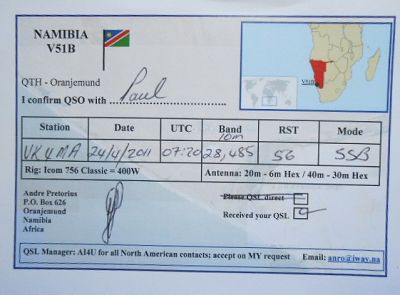 NAMIBIA
V51B
QTH - Oranjemund
I confirm QSO with Paul
V51B
Station Date UTC Band RST Mode
10m
VK4MA 24/4/2011 07:20 28,485 56 SSB
Rig: Icom 756 Classic = 400W Antenna: 20m - 6m Hex / 40m - 30m Hex
Andre Pretorius
P.O. Box 626
Oranjemund
Namibia
Africa
Please QSL direct
Received your QSL
QSL Manager: AI4U for all North American contacts; accept on MY request Email: anro@iway.na